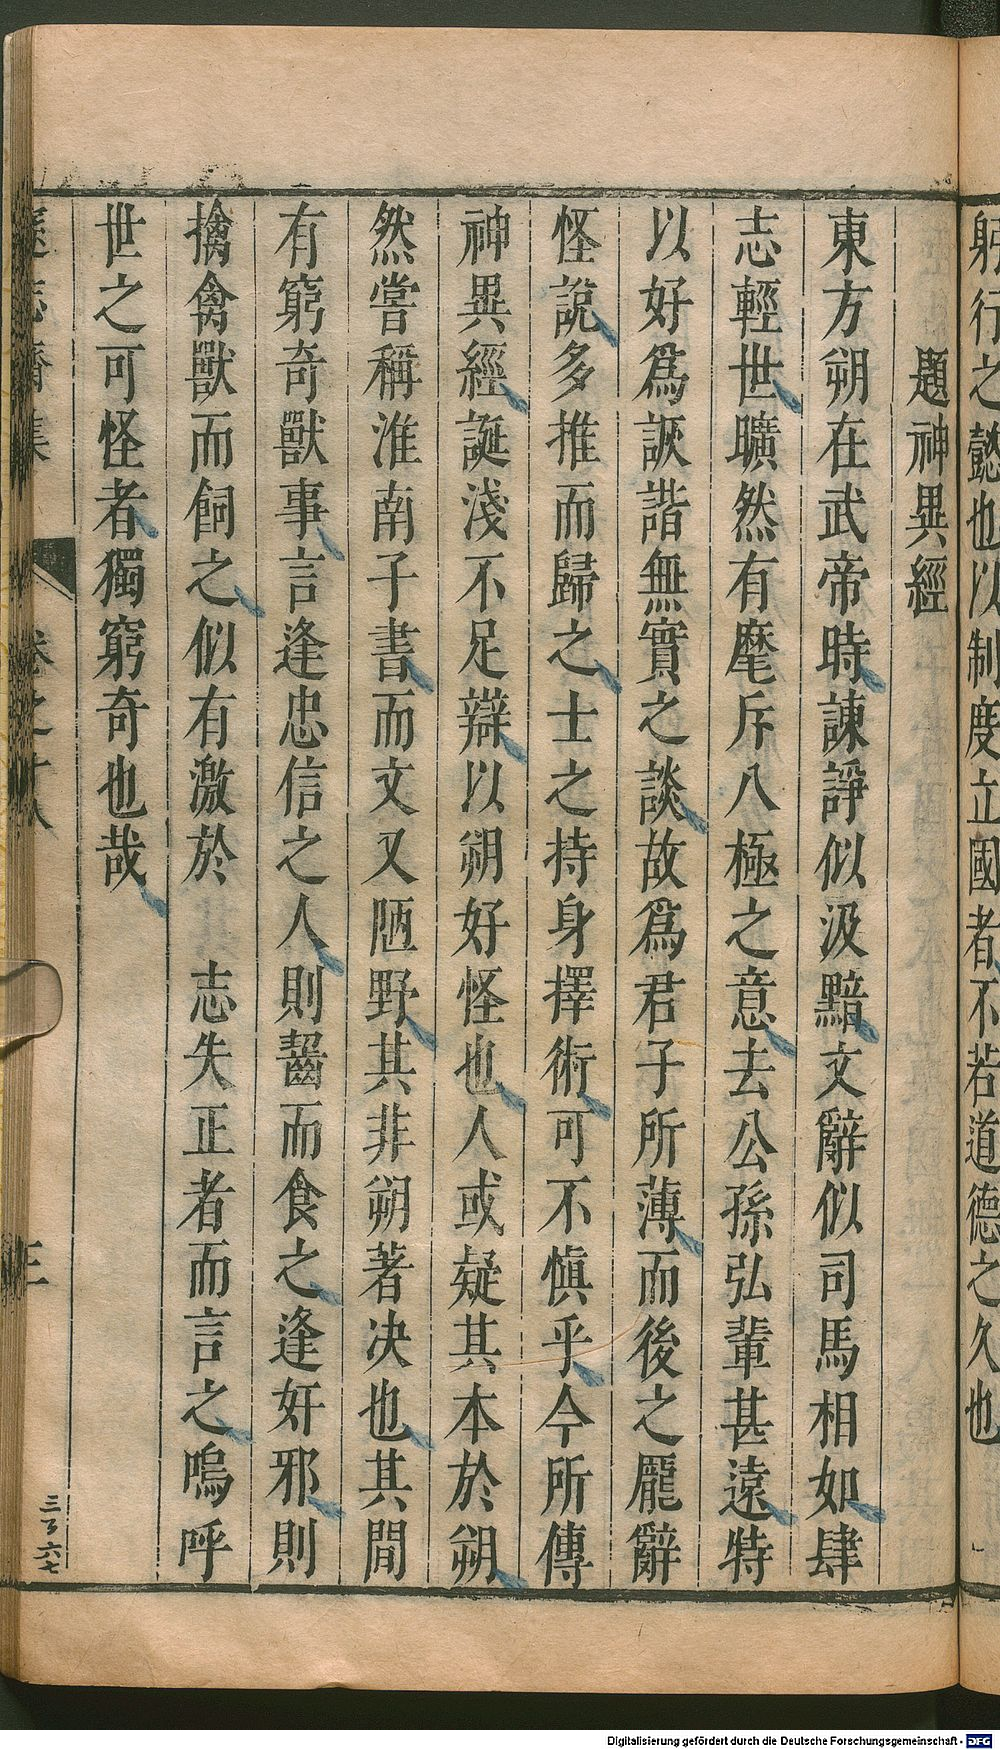 躬行之懿也以制度立國者不若道德之久也
題神異經
東方朔在武帝時諫諍似汲黯文辭似司馬相如肆
志輕世曠然有麾斥八極之意去公孫弘輩甚遠特
以好為詼諧無實之談故為君子所薄而後之厖辭
怪說多推而歸之士之持身擇術可不慎乎今所傳
神異經誕淺不足辯以朔好怪也人或疑其本於朔
然嘗稱淮南子書而文又陋野其非朔著决也其間
有窮奇獸事言逢忠信之人則齧而食之逢奸邪則
擒禽獸而飼之似有激於 志失正者而言之嗚呼
世之可怪者獨窮奇也哉
遜志齋集 卷之十八
三百六七
Digitalisierung gefördert durch die Deutsche Forschungsgemeinschaft - DFG